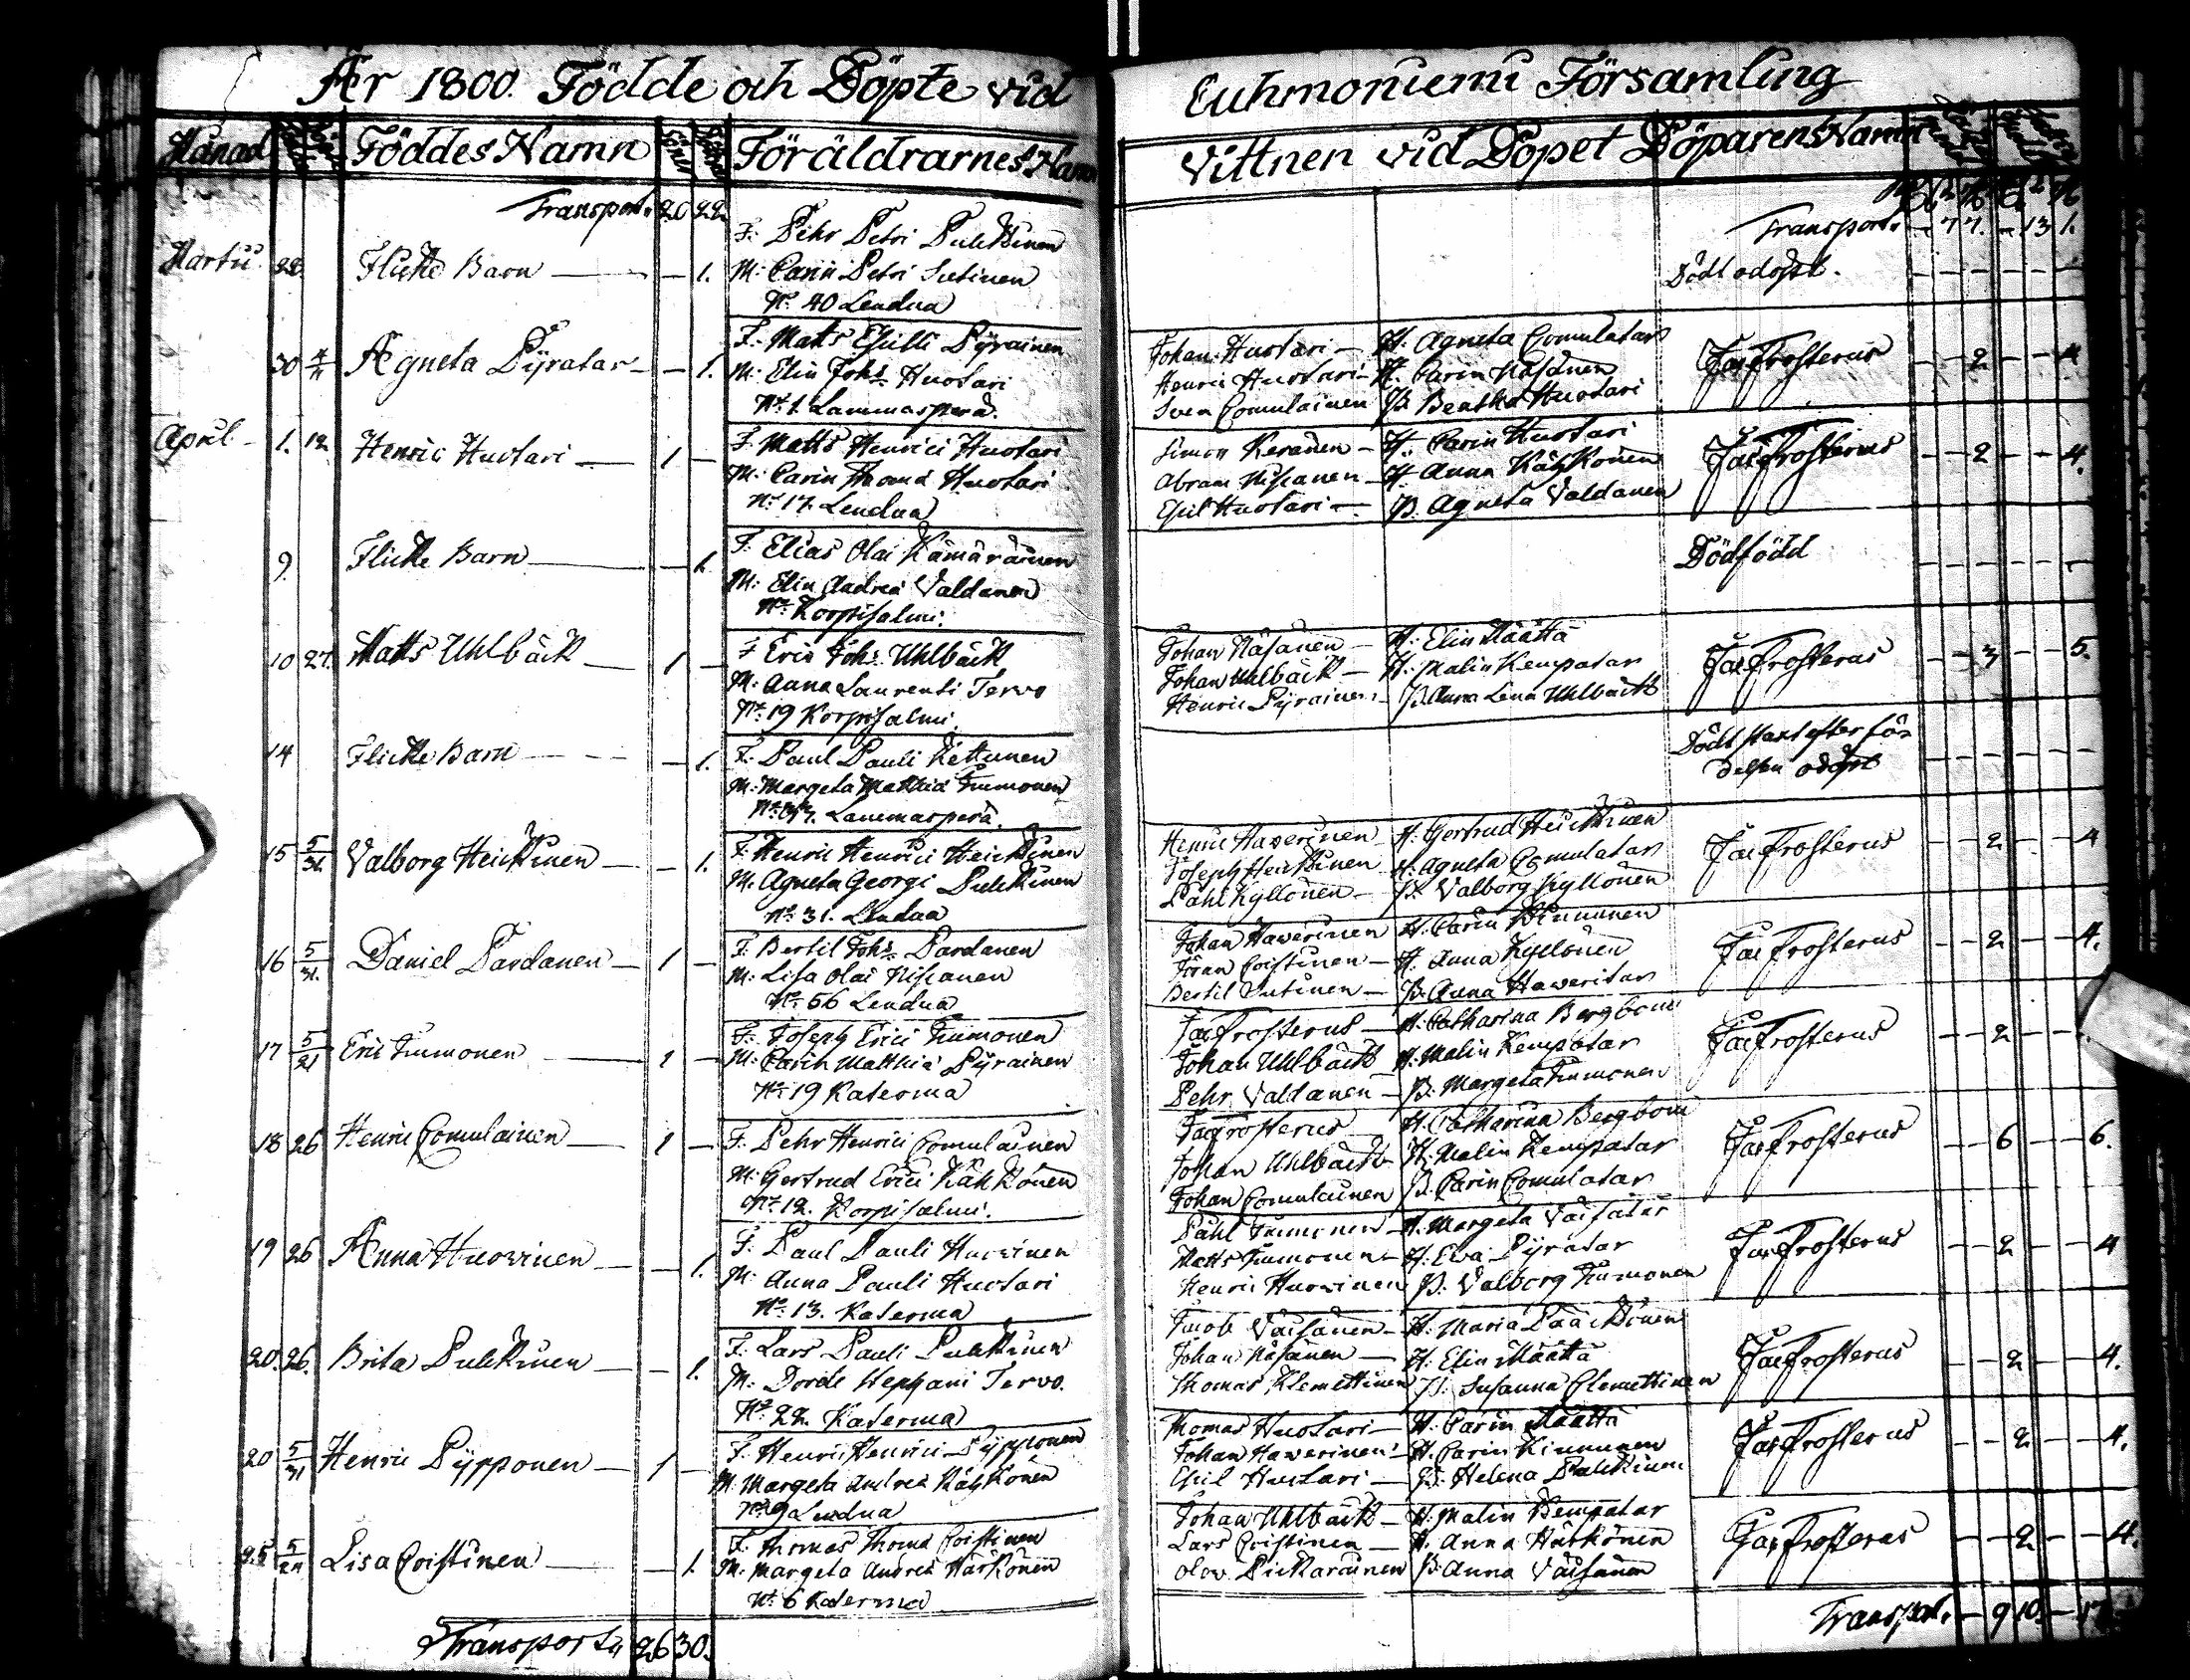 År 1800. Födde och Döpte vid
Månad Föddes Namn Föräldrarnes Namn
Transport. 20 22
Martii 22. Flicke Barn — — 1.
F: Pehr Petri Pulckinen
M: Carin Petri Sutinen
No 40 Lendua
30 Agneta Pyratar — — 1.
F: Matts Eskilli Pyrainen
M: Elin Johs Huotari
No 1. Lammasperä.
April 1. 12 Henric Huotari — 1 —
F: Matts Henrici Huotari
M: Carin Thomæ Huotari
No 17. Lendua
9. Flicke Barn — — 1.
F: Elias Olai Kämäräinen
M: Elin Andreæ Valdanen
No Korpisalmi.
10 27. Matts Uhlbäck — 1 —
F: Eric Johs Uhlbäck
M: Anna Laurenti Tervo
No 19 Korpisalmi.
14 Flicke Barn — — 1.
F: Paul Pauli Kettunen
M: Margeta Matthiæ Timonen
Lammasperä.
15 5/31. Valborg Heickinen — — 1.
F: Henric Henrici Heickinen
M: Agneta Georgi Pulckinen
No 31. Lendua
16 5/31. Daniel Pardanen — 1 —
F: Bertil Johs Pardanen
M: Lisa Olai Niskanen
No 66 Lendua
17 5/21 Eric Timonen — 1 —
F: Joseph Erici Timonen
M: Carin Matthiæ Pyrainen
No 19 Katerma
18 26 Henric Comulainen — 1 —
F: Pehr Henrici Comulainen
M: Gertrud Erici Kähkönen
No 12. Korpisalmi.
19 26 Anna Huovinen — — 1.
F: Paul Pauli Huovinen
M: Anna Pauli Huotari
No 13. Katerma
20. 26. Brita Pulckinen — — 1.
F: Lars Pauli Pulckinen
M: Dorde Stephani Tervo.
No 22. Katerma
20 5/31 Henric Pypponen — 1 —
F: Henric Henrici Pypponen
M: Margeta Andreæ Kähkönen
No 9 Lendua
25 Lisa Coistinen — — 1.
F: Thomas Thomæ Coistinen
M: Margeta Andreæ Härkönen
No 6 Katerma
Transport 26 30.
Cuhmoniemi Församling
Vittnen vid Döpet Döparens Namn
Transport. — 77. — 13 1.
Dödt odöpt.
Johan Huotari — H. Agneta Comulatar
Henric Huotari — H. Carin Näsänen
Sven Comulainen P. Beatha Huotari
Jac Frosterus — — 2 — — 4
Simon Keränen — H. Carin Huotari
Abram Niskanen — H. Anna Kähkönen
Eskil Huotari — P. Agneta Valdanen
Jac Frosterus — — 2 — — 4.
Dödfödd
Johan Näsänen — H. Elin Määttä
Johan Uhlbäck — H. Malin Kempatar
Henric Pyrainen P. Anna Lena Uhlbäck
Jac Frosterus — — 3 — — 5.
Dödt straxt efter fö-
delsen odöpt
Henric Haverinen H. Gertrud Heickinen
Joseph Heickinen H. Agneta Comulatar
Pahl Kyllönen — P. Valborg Kyllönen
Jac Frosterus — — 2 — — 4
Johan Haverinen H. Carin Kinnunen
Jöran Coistinen — H. Anna Kyllönen
Bertil Sutinen — P. Anna Haveritar
Jac Frosterus — — 2 — — 4.
Jac Frosterus — H. Catharina Bergbom
Johan Uhlbäck H. Malin Kempatar
Pehr Valdanen — P. Margeta Timonen
Jac Frosterus — — 2 — —
Jac Frosterus — H. Catharina Bergbom
Johan Uhlbäck H. Malin Kempatar
Johan Comulainen P. Carin Comulatar
Jac Frosterus — — 6 — — 6.
Pahl Timonen — H. Margeta Väisätär
Matts Timonen — H. Eva Pyratar
Henric Huovinen P. Valborg Timonen
Jac Frosterus — — 2 — — 4
Jacob Väisänen — H. Maria Pääckönen
Johan Näsänen — H. Elin Määttä
Thomas Klemettinen P. Susanna Clemettinen
Jac Frosterus — — 2 — — 4.
Thomas Huotari — H. Carin Määttä
Johan Haverinen — H. Carin Kinnunen
Eskil Huotari — P. Helena Pulckinen
Jac Frosterus — — 2 — — 4.
Johan Uhlbäck — H. Malin Kempatar
Lars Coistinen — H. Anna Härkönen
Olov Pickarainen P. Anna Väisänen
Jac Frosterus — — 2 — — 4.
Transport. — 9 10. — 17